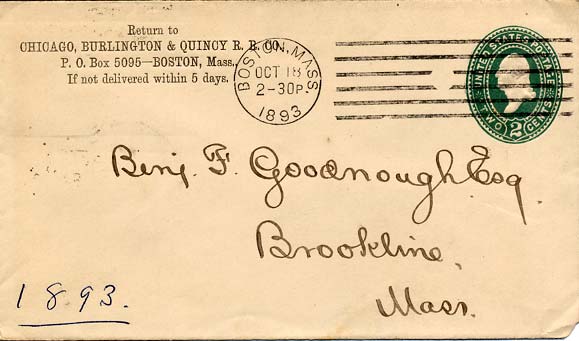 Return to
CHICAGO, BURLINGTON & QUINCY R. R. CO.
P. O. Box 5095—BOSTON, Mass.
If not delivered within 5 days.
BOSTON, MASS.
OCT 18
2-30P.
1893
UNITED STATES POSTAGE
TWO 2 CENTS
Benj. F. Goodnough Esq
Brookline,
Mass.
1893.